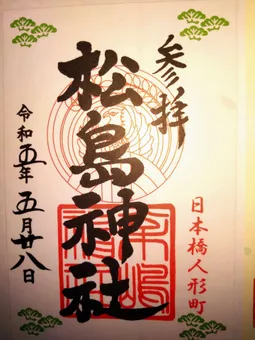 参拝
松島神社
日本橋人形町
令和五年五月廿八日